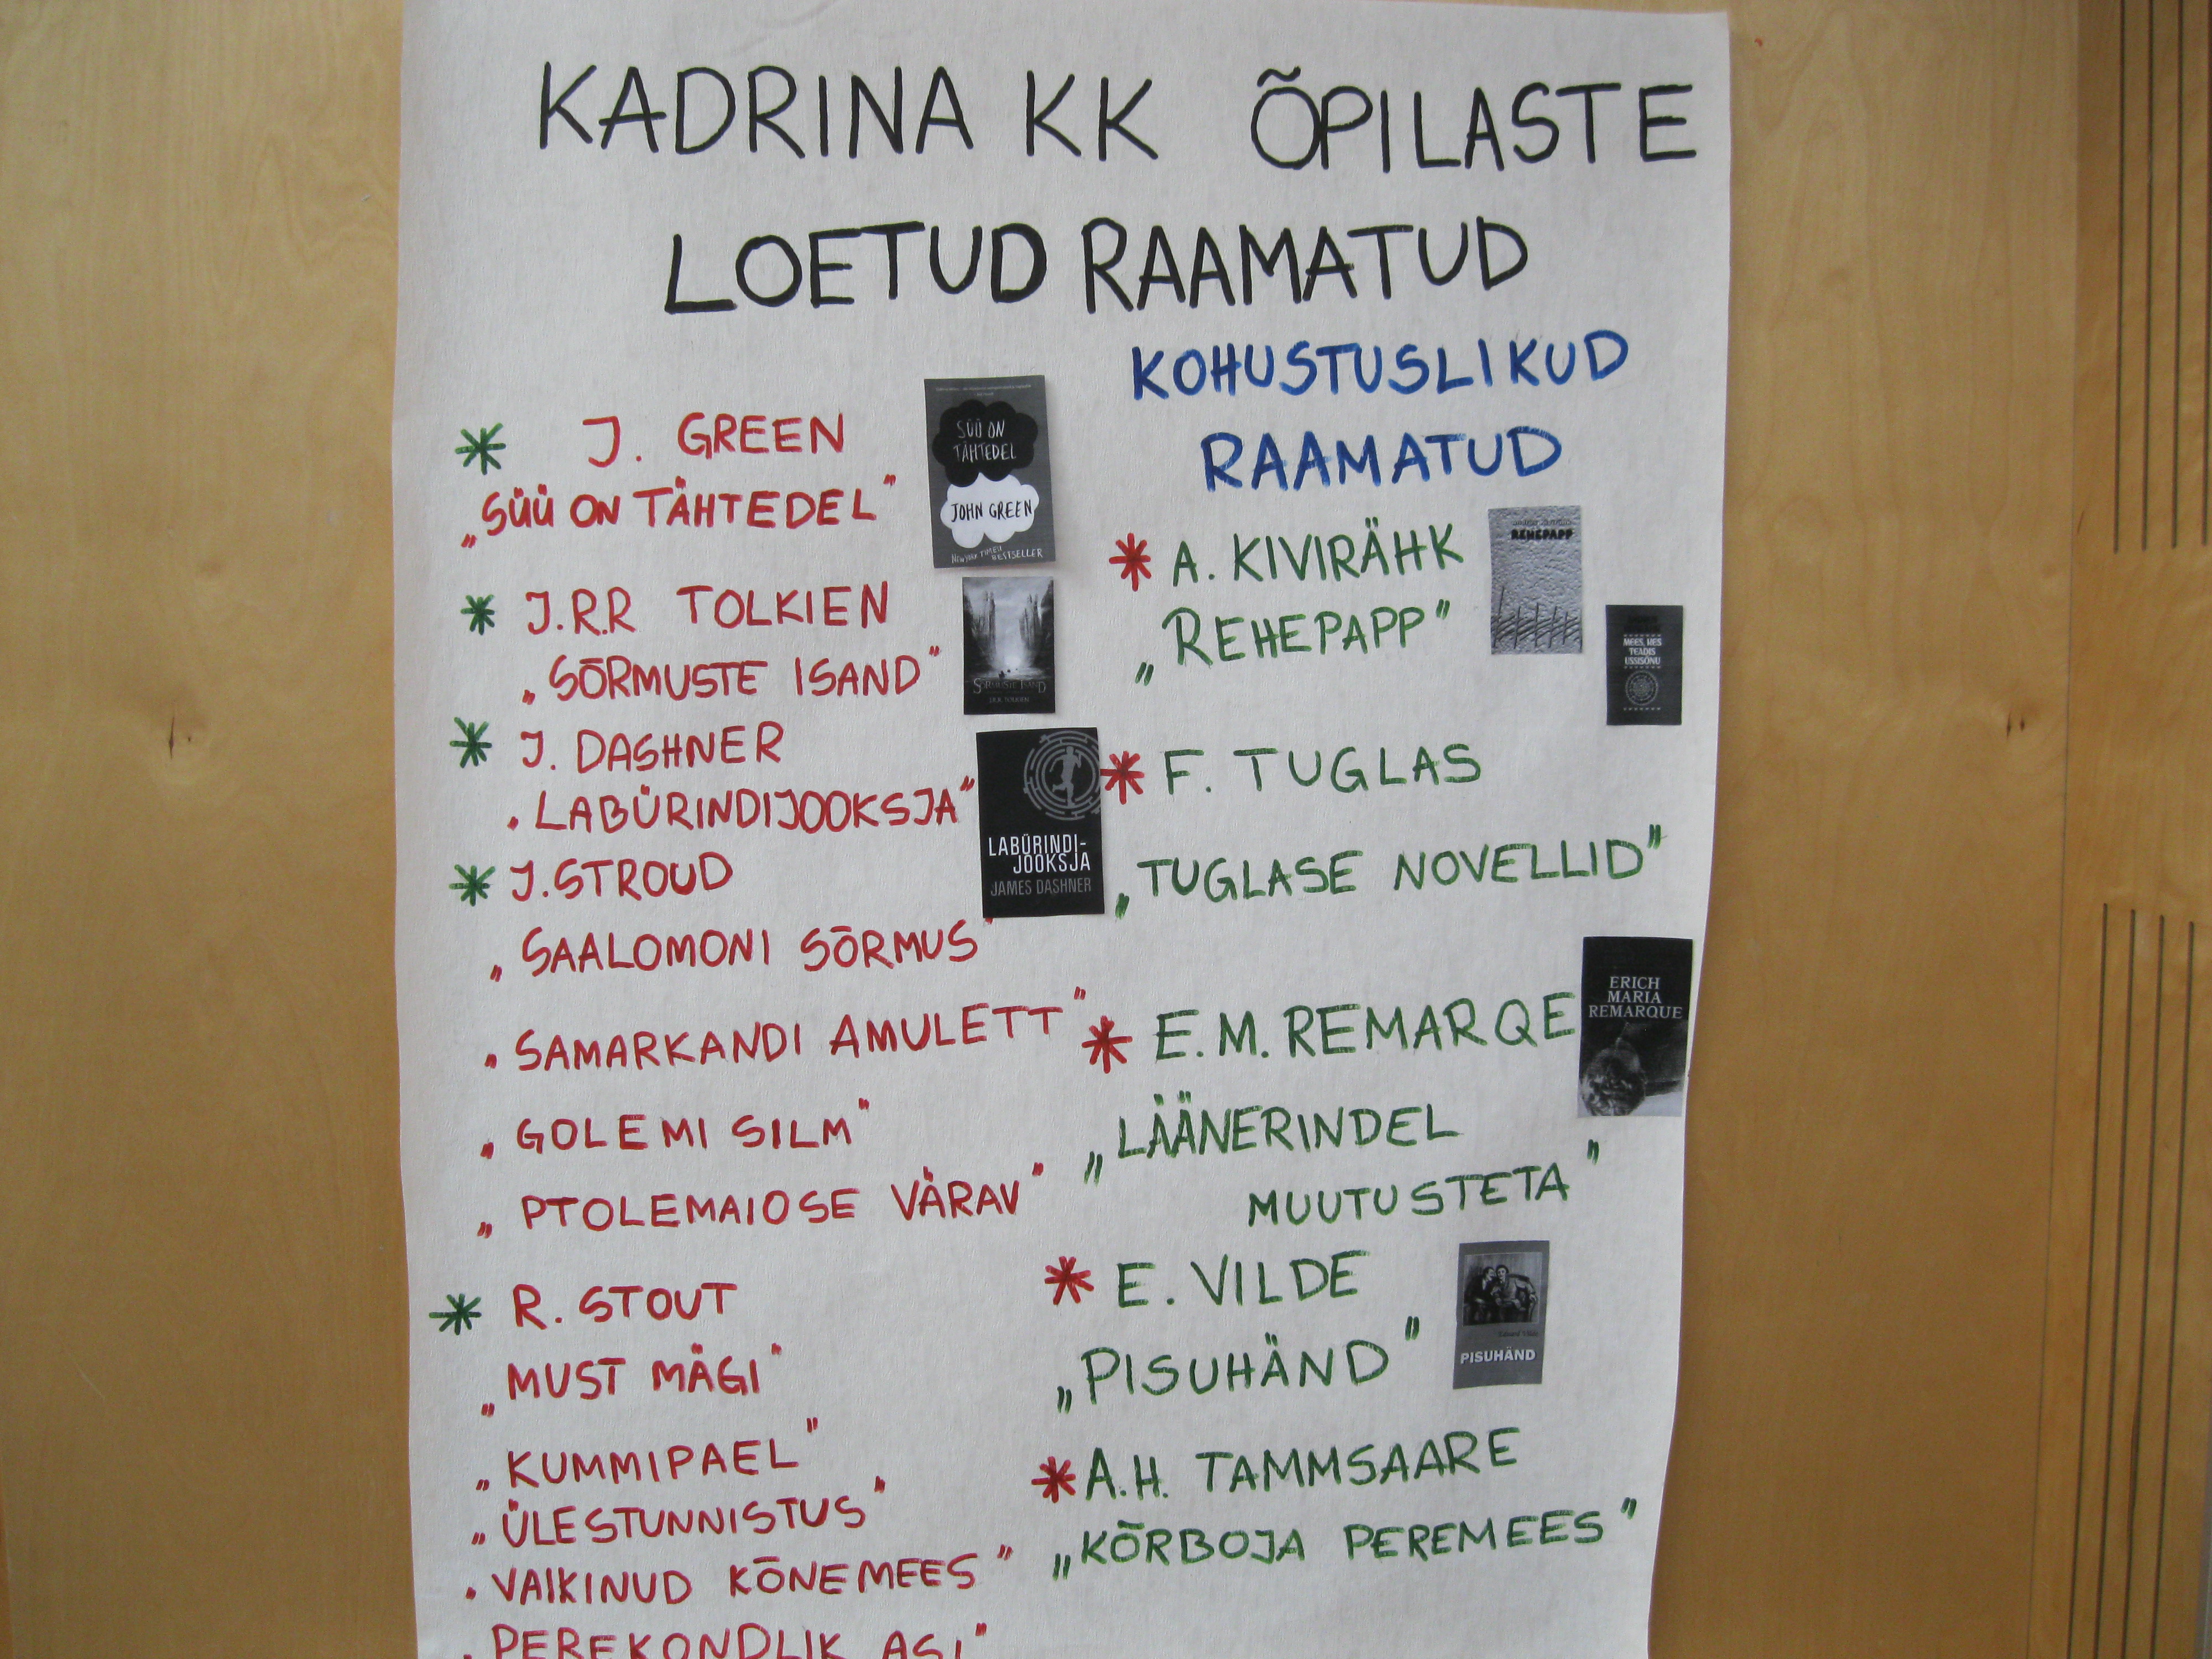 KADRINA KK ÕPILASTE
LOETUD RAAMATUD
J. GREEN
„SÜÜ ON TÄHTEDEL"
SÜÜ ON
TÄHTEDEL
JOHN GREEN
NEW YORK TIMES BESTSELLER
J.R.R TOLKIEN
„SÕRMUSTE ISAND"
SÕRMUSTE ISAND
J. DASHNER
„LABÜRINDIJOOKSJA"
LABÜRINDI-
JOOKSJA
JAMES DASHNER
J. STROUD
„SAALOMONI SÕRMUS"
„SAMARKANDI AMULETT"
„GOLEMI SILM"
„PTOLEMAIOSE VÄRAV"
R. STOUT
„MUST MÄGI"
„KUMMIPAEL"
„ÜLESTUNNISTUS"
„VAIKINUD KÕNEMEES"
„PEREKONDLIK ASI"
KOHUSTUSLIKUD
RAAMATUD
A. KIVIRÄHK
„REHEPAPP"
REHEPAPP
MEES, KES
TEADIS
USSISÕNU
F. TUGLAS
„TUGLASE NOVELLID"
E.M. REMARQE
ERICH
MARIA
REMARQUE
„LÄÄNERINDEL
MUUTUSTETA"
E. VILDE
„PISUHÄND"
PISUHÄND
A.H. TAMMSAARE
„KÕRBOJA PEREMEES"